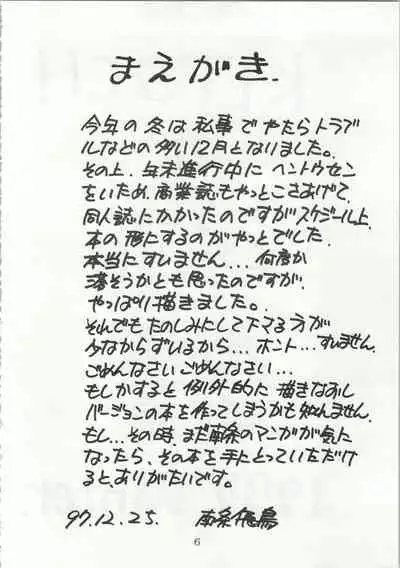 まえがき.
今年の冬は私事でやたらトラブ
ルなどの多い12月となりました。
その上、年末進行中にヘントウセン
をいため、商業誌もやっとこさあげて、
同人誌にかかったのですがスケジュール上、
本の形にするのがやっとでした。
本当にすいません...何度か
落そうかとも思ったのですが、
やっぱり描きました。
それでもたのしみにして下マる方が
少なからずいるから...ホント...すいません。
ごめんなさいごめんなさい...
もしかすると例外的に描きなおし
バージョンの本を作ってしまうかも知れません。
もし...その時、まだ南条のマンガが気に
なったら、その本を手にとっていただけ
ると、ありがたいです。
97.12.25. 南条飛鳥
6